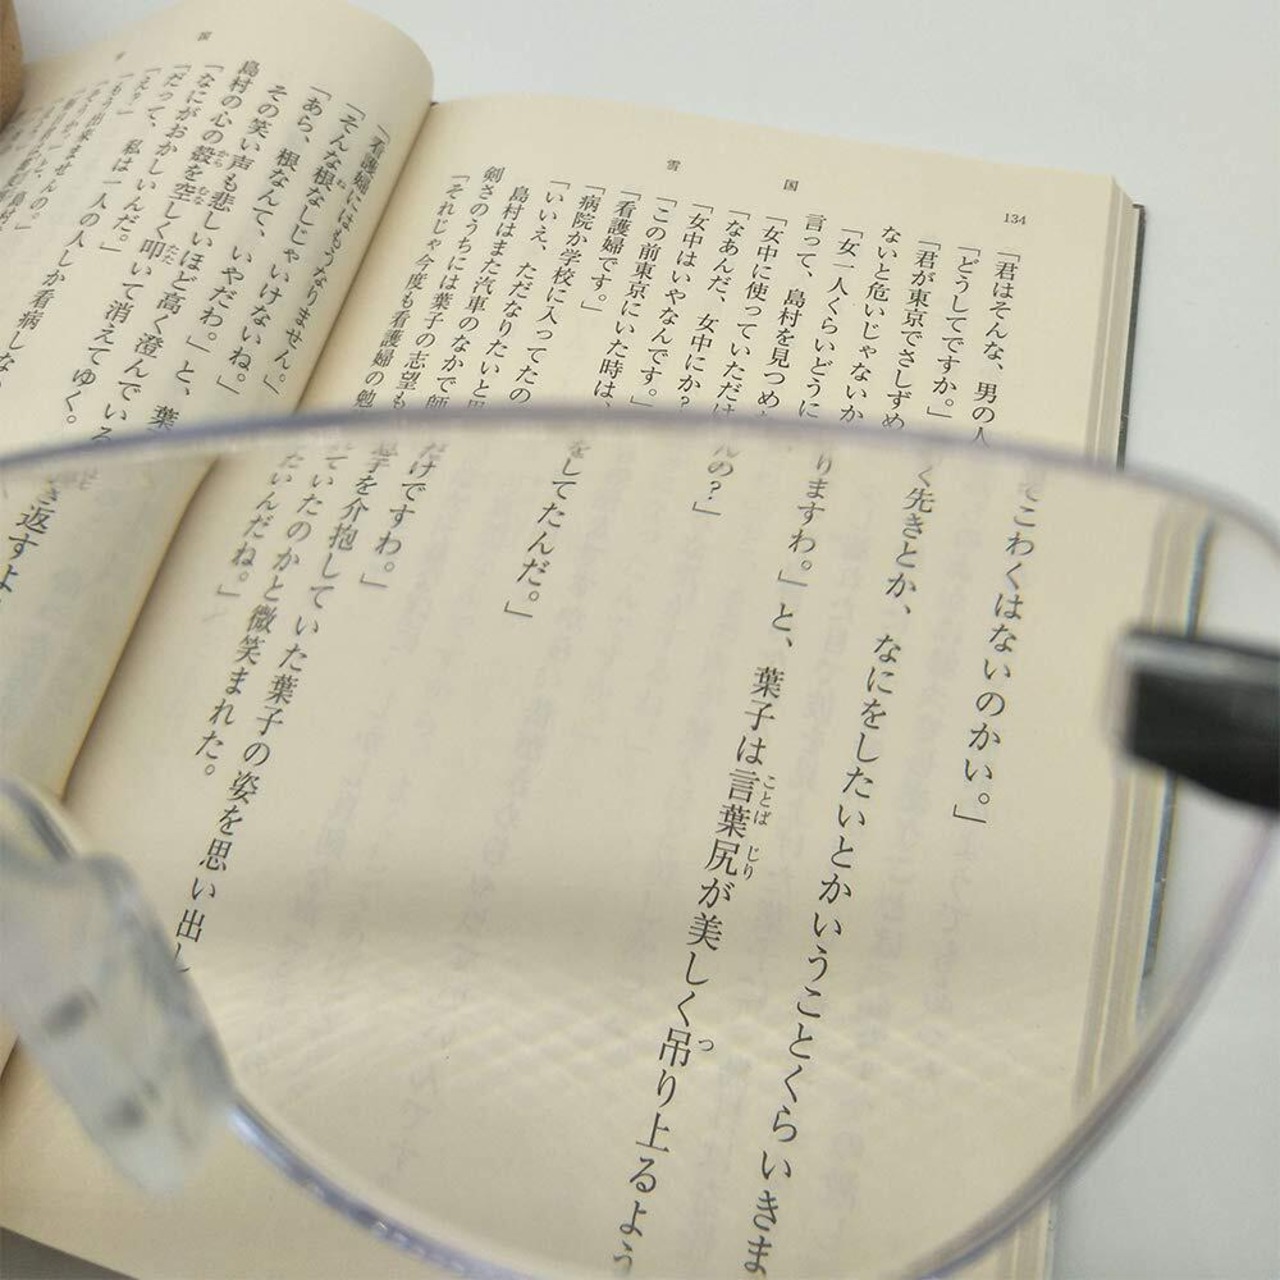 134
雪国
「君はそんな、男の人 こわくはないのかい。」
「どうしてですか。」
「君が東京でさしずめ く先きとか、なにをしたいとかいうことくらいきま
ないと危いじゃないか
「女一人くらいどうに りますわ。」と、葉子は言葉尻が美しく吊り上るよう
言って、島村を見つめ
「女中に使っていただけ んの?」
「なあんだ、女中にか?
「女中はいやなんです。」
「この前東京にいた時は、 をしてたんだ。」
「看護婦です。」
「病院か学校に入ってたの
「いいえ、ただなりたいと思 だけですわ。」
島村はまた汽車のなかで師 息子を介抱していた葉子の姿を思い出し
剣さのうちには葉子の志望も ていたのかと微笑まれた。
「それじゃ今度も看護婦の勉 たいんだね。」
国
「看護婦にはもうなりません。」
「そんな根なしじゃいけないね。」
「あら、根なんて、いやだわ。」と、葉
その笑い声も悲しいほど高く澄んでいる
島村の心の殻を空しく叩いて消えてゆく。
「なにがおかしいんだ。」
「だって、私は一人の人しか看病しな
「え?」
「もう出来ませんの。」
き返すよ